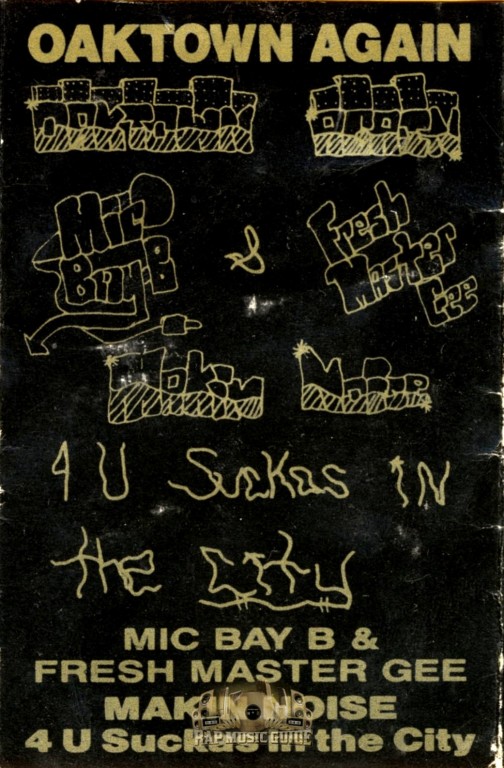 OAKTOWN AGAIN
OAKTOWN AGAIN
Mic Bay-B & Fresh Master Gee
Makin Noise
4 U Suckas IN
the City
MIC BAY B &
FRESH MASTER GEE
MAKIN NOISE
4 U Suckas in the City
RAP MUSIC GUIDE